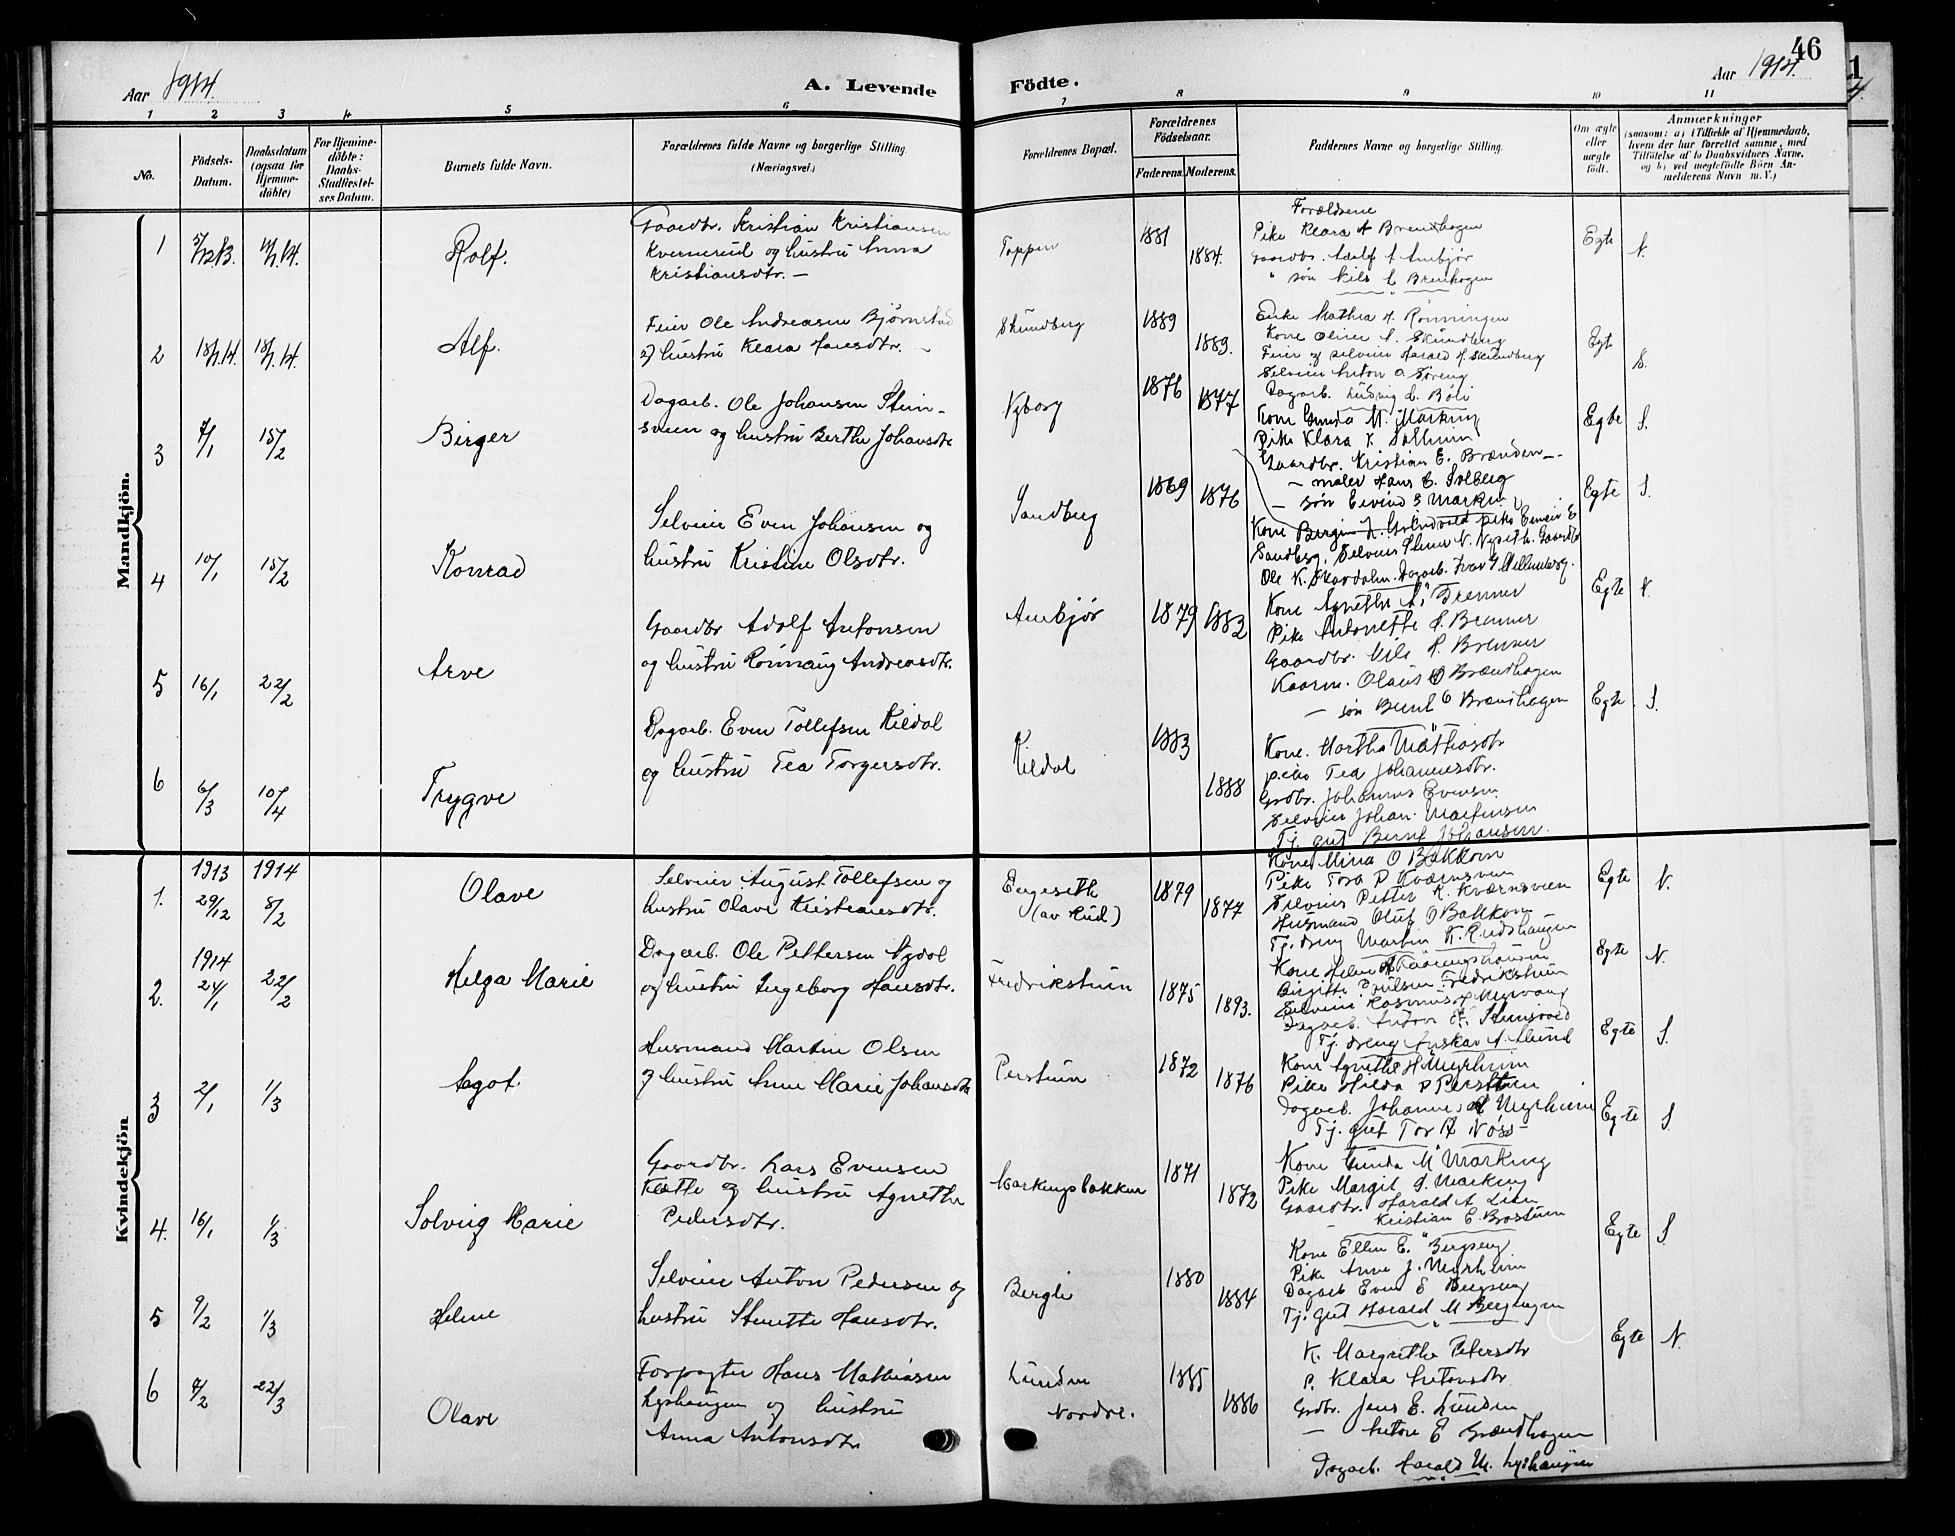 46
Aar 1914.
A. Levende
Födte.
Aar 1914.
1 2 3 4 5 6 7 8 9 10 11
No.
Födsels-
Datum.
Daabsdatum
(ogsaa for
Hjemme-
döbte)
For Hjemme-
döbte:
Daabs-
Stadfæstel-
ses Datum.
Barnets fulde Navn.
Forældrenes fulde Navne og borgerlige Stilling.
(Næringsvei.)
Forældrenes Bopæl.
Forældrenes
Födselsaar.
Faderens. Moderens.
Faddernes Navne og borgerlige Stilling.
Om ægte
eller
uægte
födt.
Anmærkninger
(saasom: a) i Tilfælde af Hjemmedaab,
hvem der har forrettet samme, med
Tilföielse af to Daabsvidners Navne,
og b) ved uægtefödte Börn An-
melderens Navn m. V.)
Mandkjön.
1
Rolf.
Gaardbr. Kristian Kristiansen
Kvernerud og hustru Anna
Kristiansdtr. —
Toppen
1881
1884.
Forældrene
Pike Klara A Brendhagen
Gaardbr. Adolf A Aubjør
" søn Nils A Brenhagen
Egte
N.
2
18/1.14.
18/1.14.
Alf.
Feier Ole Andreasen Bjørnstad
og hustru Klara Hansdtr. —
Skundberg
1889
1889.
Enke Mathea H. Rønningen
Kone Oline A. Skundberg
Feier og selveier Harald H. Skundberg
Selveier Anton O Søreng
Dagarb. Ludvig L. Böle
Egt
S.
3
7/1
15/2
Birger
Dagarb. Ole Johansen Stein-
sveen og hustru Berthe Johansdtr
Nyborg
1876
1877
Kone Gunda M. Marking
Pike Klara K. Solhum
Gaardbr. Kristian E. Brænden —
— maler Hans E. Solberg
— søn Eivind E Marking
Egte
S.
4
10/1
15/2
Konrad
Selveier Even Johansen og
hustru Kristine Olsdtr.
Sandberg
1869
1876
Sandberg, Selveier
Ole K. Skardalm. Dagarb. Ivar G.
Egte
S.
5
16/1
22/2
Arve
Gaardbr Adolf Antonsen
og hustru Rønnaug Andreasdtr.
Aubjør
1879
1882
Kone Agnethe A. Brenner
Pike Antonette A. Brenner
Gaardbr. Nils A. Brenner
Kaarm. Olaus O Brændhagen
— søn Bernt O Brændhagen
Egte
N.
6
6/3
10/4
Trygve
Dagarb. Even Tollefsen Kildal
og hustru Tea Torgersdtr.
Kildal
1883
1888
Kone. Martha Mathiasdtr
pike Tea Johannesdtr.
Grdbr. Johannes Evensen
Selveier Johan. Martinsen
Tj. gut Bernt Johansen.
Egte
S.
Kvindekjön
1.
1913
29/12
1914
8/2
Olave
Selveier August Tollefsen og
hustru Olave Kristiansdtr.
Engeseth
(av Rud)
1879
1877
Kone Mina O Bakkom
Pike Tora P Kværnsveen
Selveier Petter K. Kværnsveen
Husmand Oluf O Bakkom
Tj. dreng Martin K. Rudshaugen
Egte
N.
2.
1914
24/1
22/2
Helga Marie
Dagarb. Ole Pettersen Nydal
og hustru Ingeborg Hansdtr.
Fredrikstuen
1875
1893.
Birgitte Paulsen Fredrikstuen
Egte
N.
3
2/1
1/3
Agot.
Husmand Martin Olsen
og hustru Anne Marie Johansdtr
Perstuen
1872
1876
Kone Agnethe H Myrheim
Pike Hilda P Perstuen
Dagarb. Johannes H Myrheim
Tj. gut Tor A Voss
Egte
S.
4.
16/1
1/3
Solveig Marie
Gaardbr. Lars Evensen
Klette og hustru Agnethe
Pedersdtr.
Markingsbakken
1871
1872
Kone Gunda M Marking
Pike Margit L. Marking
Gaardbr. Harald A Lien
— Kristian E. Brostuen
Egte
S.
5
9/2
1/3
Helene
Selveier Anton Pedersen og
hustru Stenette Hansdtr.
Bergli
1880
1884
Kone Ellen E. Bergseng
Pike Anne J. Myrheim
Dagarb Even E Bergseng
Tj. gut Harald M Berghagen
Egte
S.
6
7/2
22/3
Olave
Forpagter Hans Mathiasen
Lyshaugen og hustru
Anna Antonsdtr
Lunden
Nordre.
1885
1886
K. Margrethe Petersdtr
P. Klara Antonsdtr
Grdbr. Jens E. Lunden
— Anton E Brændhagen
Dagarb. Harald M. Lyshaugen
Egte
N.